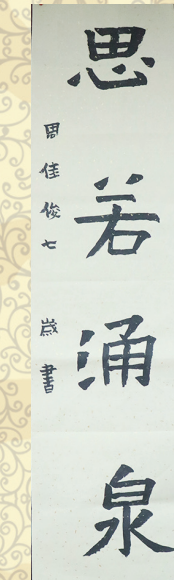 思若涌泉
周佳俊七岁書